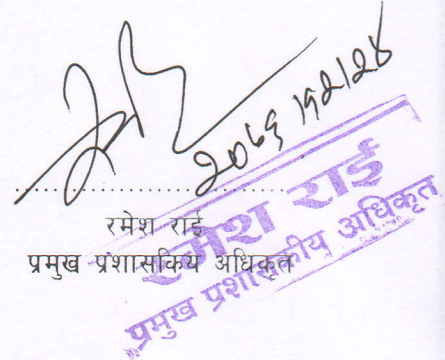 2069/12/28
रमेश राई
प्रमुख प्रशासकिय अधिकृत
रमेश राई
प्रमुख प्रशासकीय अधिकृत